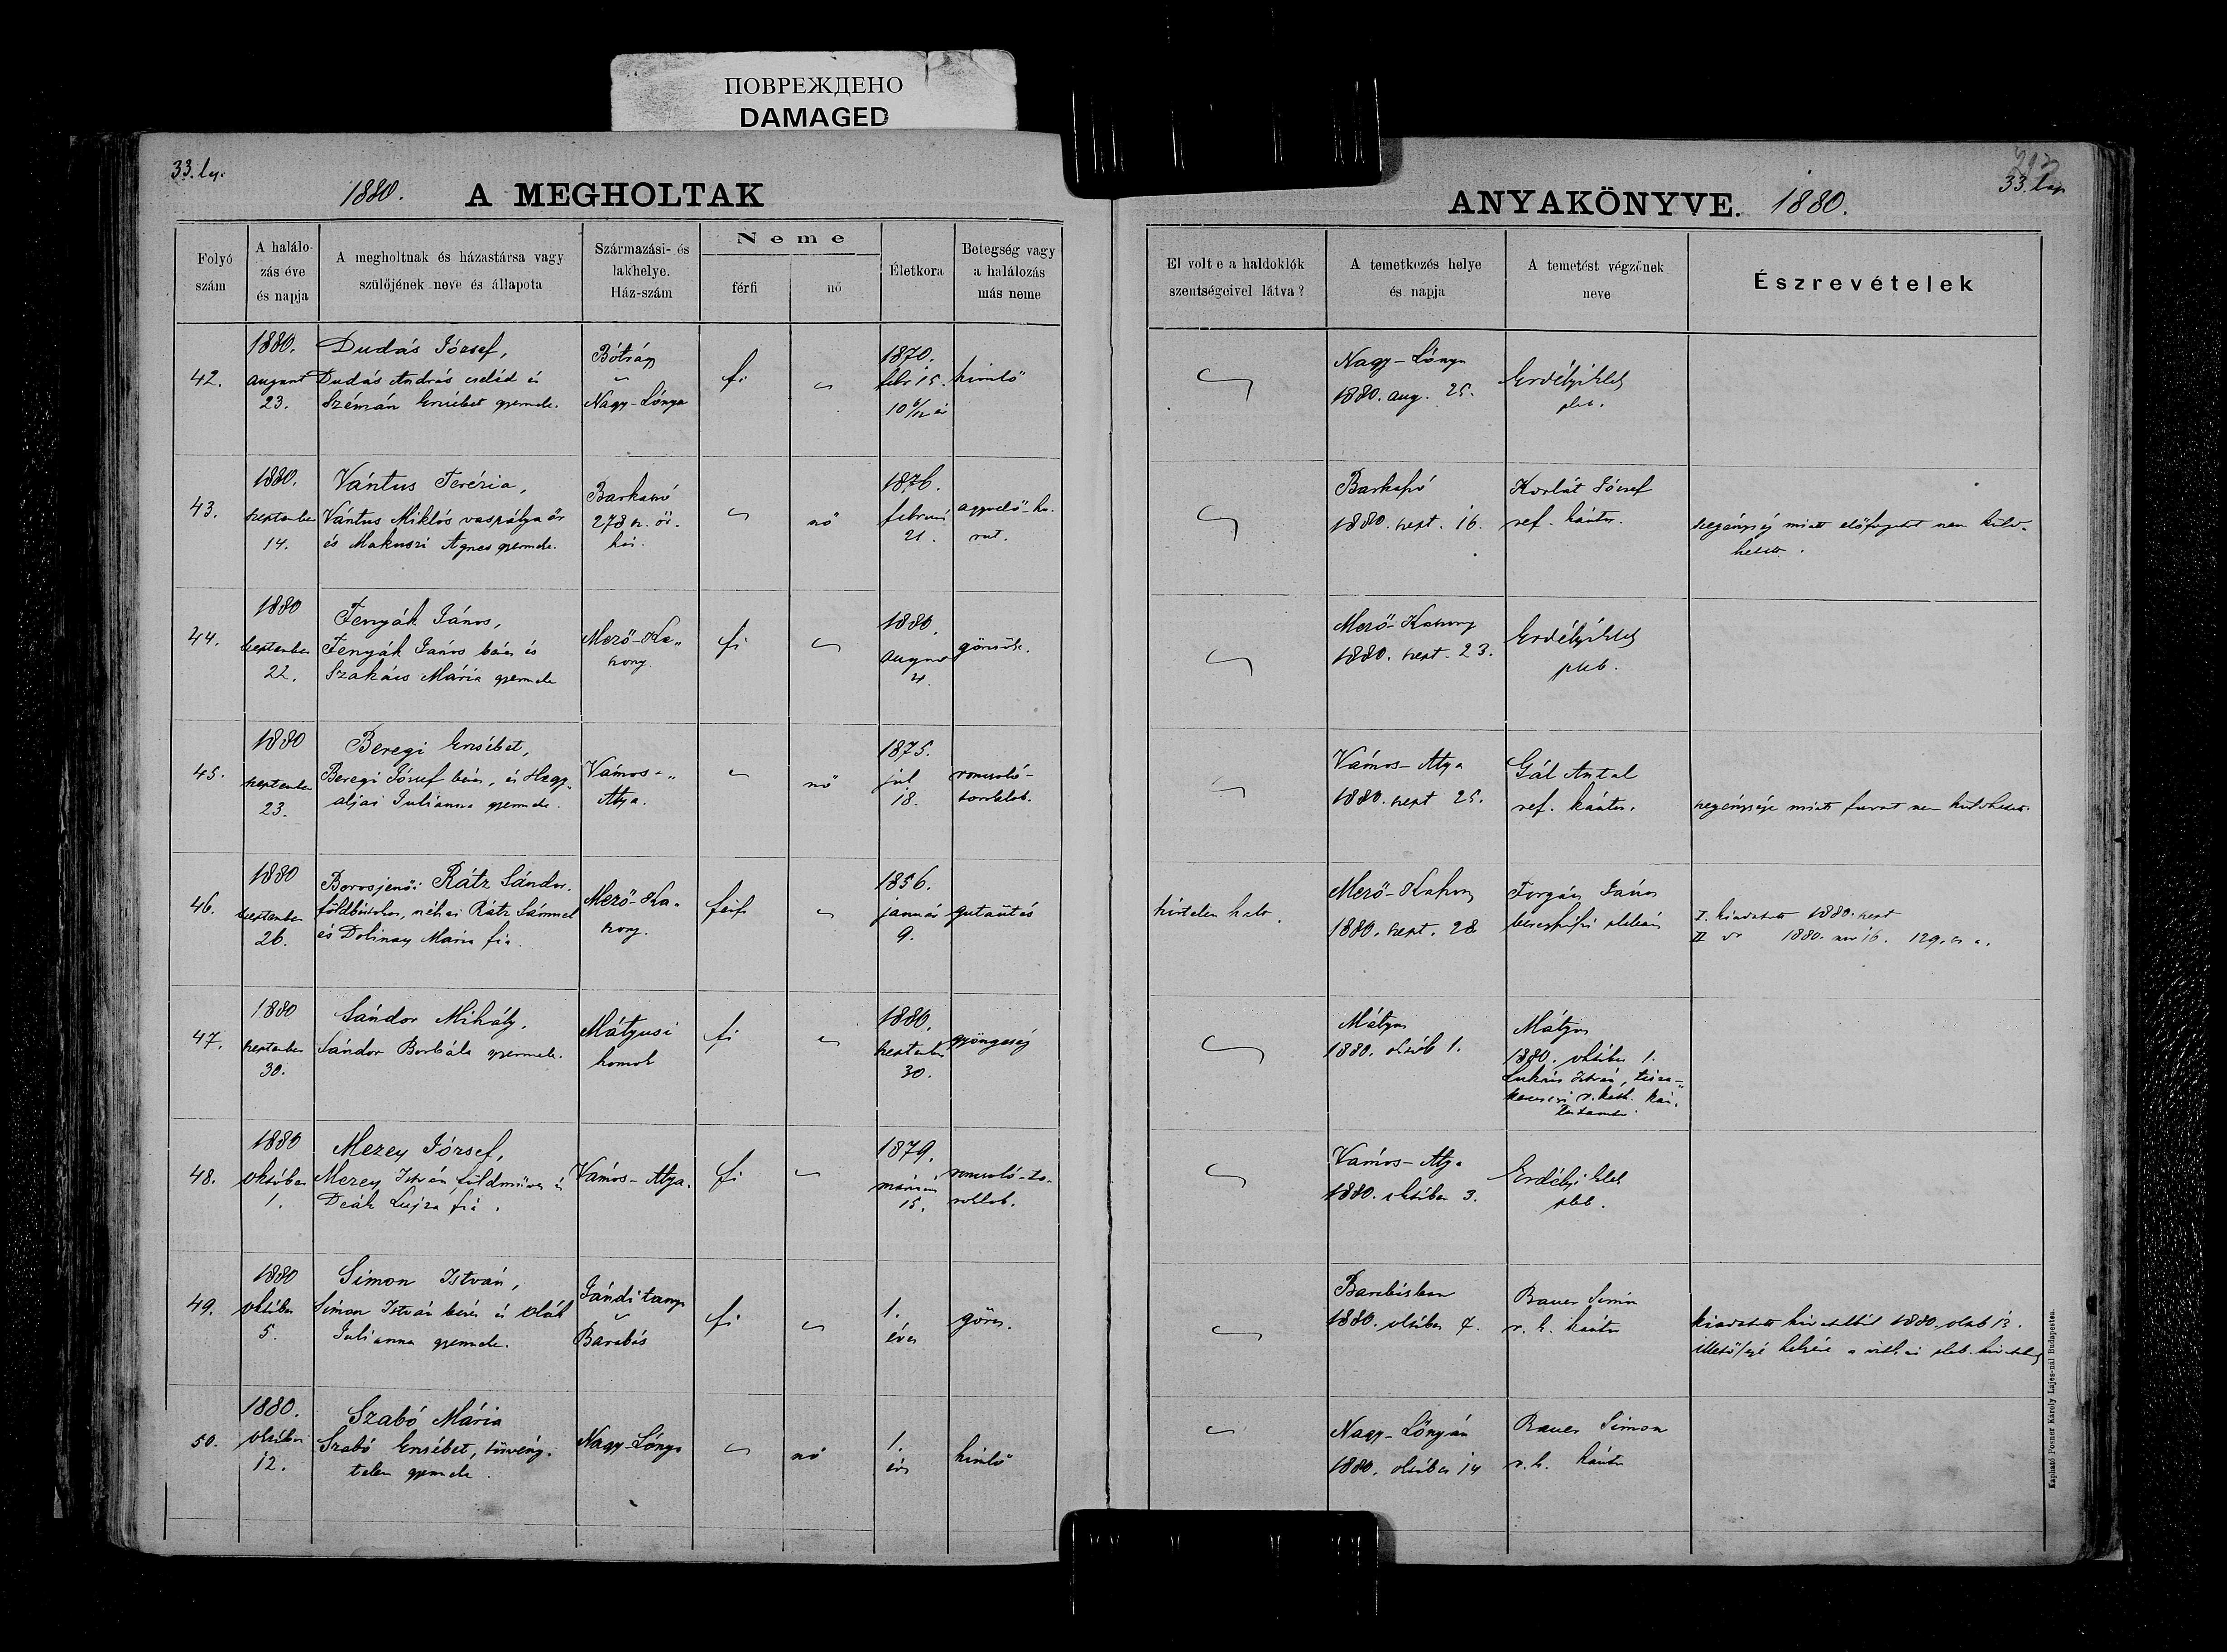 ПОВРЕЖДЕНО
DAMAGED
33. lap
1880. A MEGHOLTAK
ANYAKÖNYVE. 1880.
33. lap
Folyó szám
A halálo-
zás éve
és napja
A megholtnak és házastársa vagy
szülőjének neve és állapota
Származási- és
lakhelye.
Ház-szám
Neme
férfi
nő
Életkora
Betegség vagy
a halálozás
más neme
El volt e a haldoklók
szentségeivel látva?
A temetkezés helye
és napja
A temetést végzőnek
neve
Észrevételek
42.
1880.
august
23.
Dudás József,
Dudás András cseléd és
Szémán Erzsébet gyermeke.
Bótrágy
Nagy-Lónya
fi
1870.
febr 15.
10 6/12 év
himlő
Nagy-Lónya
1880. aug. 25.
Erdélyi
pleb.
43.
1880.
september
14.
Vántus Terézia,
Vántus Miklós vaspálya őr
és Makuszi Ágnes gyermeke.
Barkaszó
278 sz. őr-
ház.
nő
1876.
február
21.
agyvelő-hu-
rut.
Barkaszó
1880. sept. 16.
Korlát József
ref. kántor.
szegénység miatt előfogatot nem küld-
hetett.
44.
1880
september
22.
Fenyák János,
Fenyák János béres és
Szakács Mária gyermeke
Mező-Ka-
szony
fi
1880.
august
4.
görcsök.
Mező-Kaszony
1880. sept. 23.
Erdélyi
pleb.
45.
1880
september
23.
Beregi Erzsébet,
Beregi József béres, és Hegy-
aljai Julianna gyermeke.
Vámos-
Atya.
nő
1875.
jul
18.
roncsoló-
toroklob.
Vámos-Atya
1880. sept 25.
Gál Antal
ref. kántor.
szegénysége miatt fuvart nem küldhetett.
46.
1880
september
26.
Borosjenői Rátz Sándor.
földbirtokos, néhai Rátz Sámuel
és Dolinay Mária fia.
Mező-Ka-
szony.
férfi
1856.
január
9.
gutaütés
hirtelen halt.
Mező-Kaszony
1880. sept. 28
Forgács János
beregszászi plébános
I. kiadatott 1880. sept
II 1880. nov 16. 129.
47.
1880
september
30.
Sándor Mihály,
Sándor Borbála gyermeke.
Mátyusi
homok
fi
1880.
september
30.
gyöngeség
Mátyus
1880. októb 1.
Mátyus
1880. október 1.
Lukács István, tisza-
kerecseny r. kath. kán-
tortanító.
48.
1880
október
1.
Mezey József,
Mezey István földműves és
Deák Lujza fia.
Vámos-Atya.
fi
1879.
március
15.
roncsoló-to-
roklob.
Vámos-Atya
1880. október 3.
Erdélyi
pleb.
49.
1880
október
5.
Simon István,
Simon István béres és Oláh
Julianna gyermeke.
Jándi tanya
Barabás
fi
1.
éves
görcs.
Barabásban
1880. október 7.
Bauer Simon
r. k. kántor
kiadatott hivatalból 1880. októb 13.
50.
1880.
október
12.
Szabó Mária
Szabó Erzsébet, törvény-
telen gyermeke.
Nagy-Lónya
nő
1.
év
himlő
Nagy-Lónyán
1880. október 14
Bauer Simon
r. k. kántor
Kapható Posner Károly Lajos-nál Budapesten.